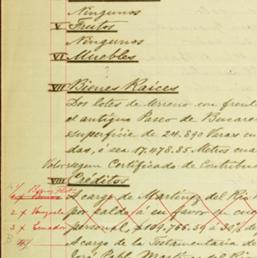 Ningunos
V Frutos
Ningunos
VI Muebles
VII Bienes Raíces
Dos lotes de terreno con frente
al antiguo Paseo de Bucare
superficie de 24.890 Varas cua
das, ó sea 17,478.85 Metros cua
segun Certificado de Contribu
VIII Créditos
A cargo de Martinez del Rio
por saldo á su favor de cuen
personal, $109,766.59
A cargo de la Testamentaria de
José Pablo Martinez del Rio
2 x
3 x Ecuador